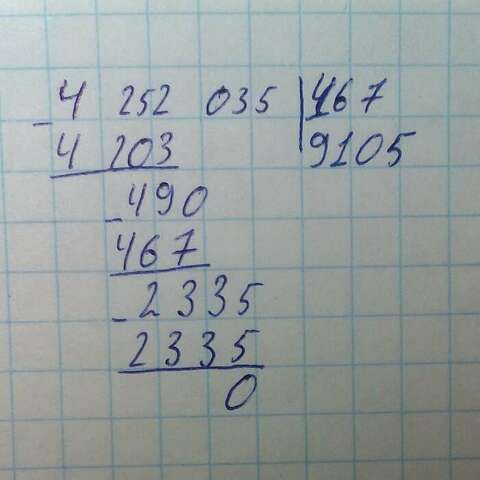 4 252 035 | 467
4 203 9105
-490
467
-2335
2335
0